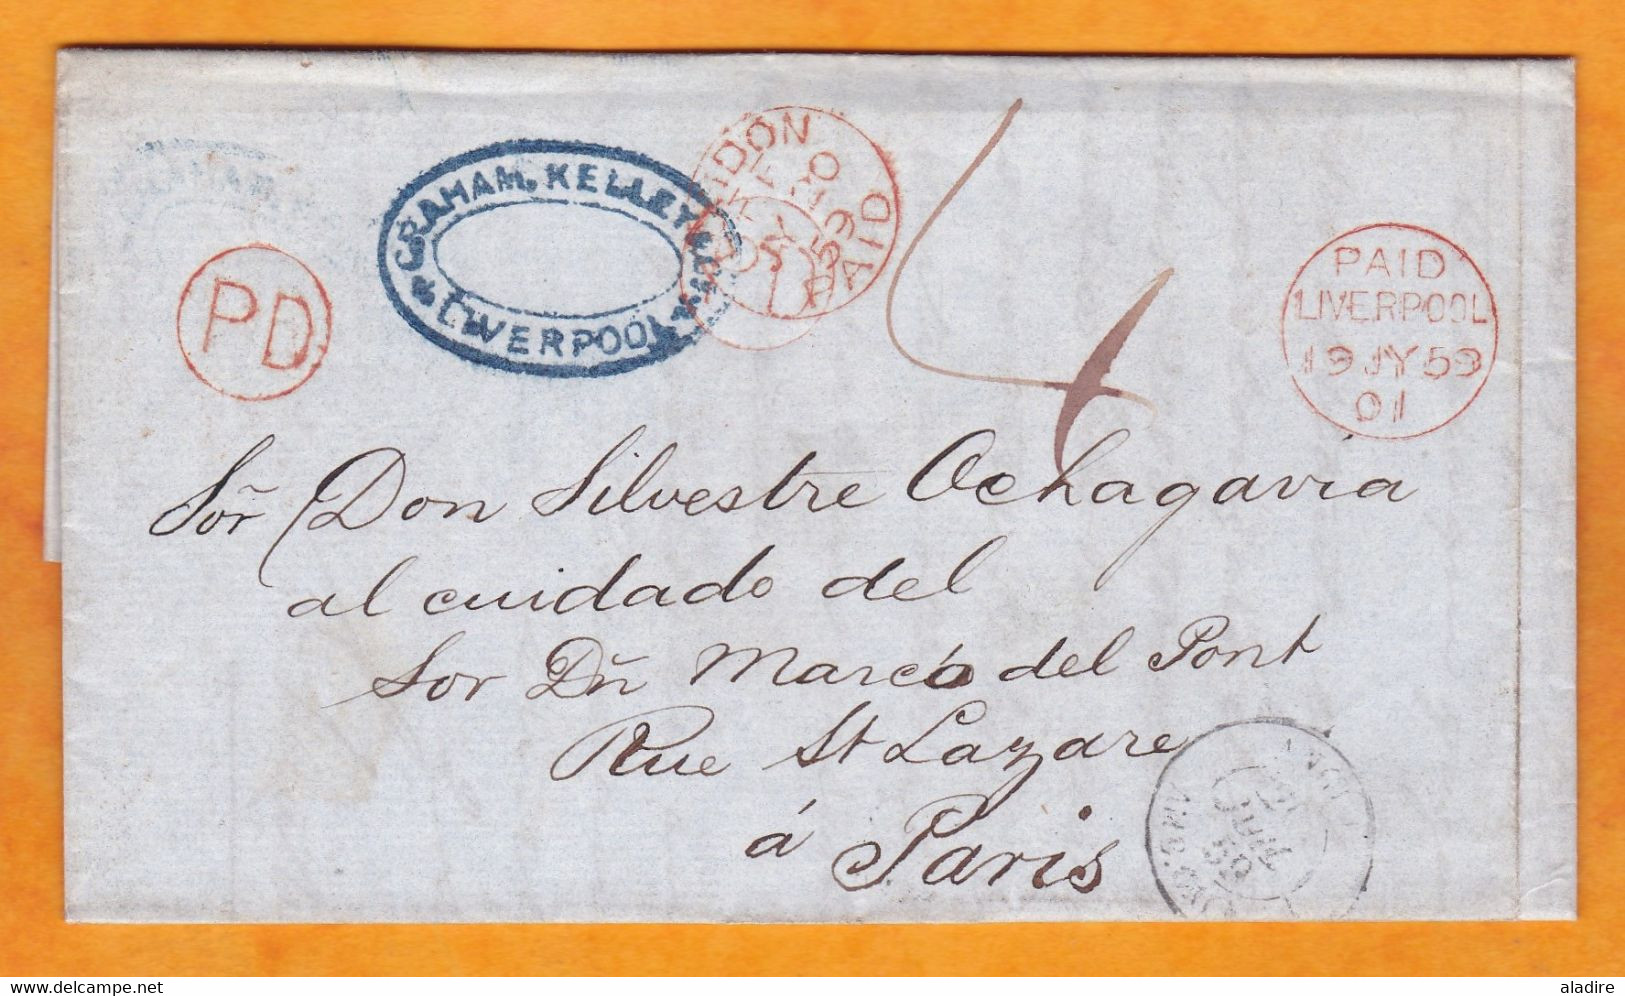 GRAHAM, KELLEY & Co
LIVERPOOL
PAID
PD
4
PAID
LIVERPOOL
19 JY 59
01
Sor Don Silvestre Ochagavia
al cuidado del
Sor Dn Marcó del Pont
Rue St Lazare
á Paris
JUIL
59
aladire